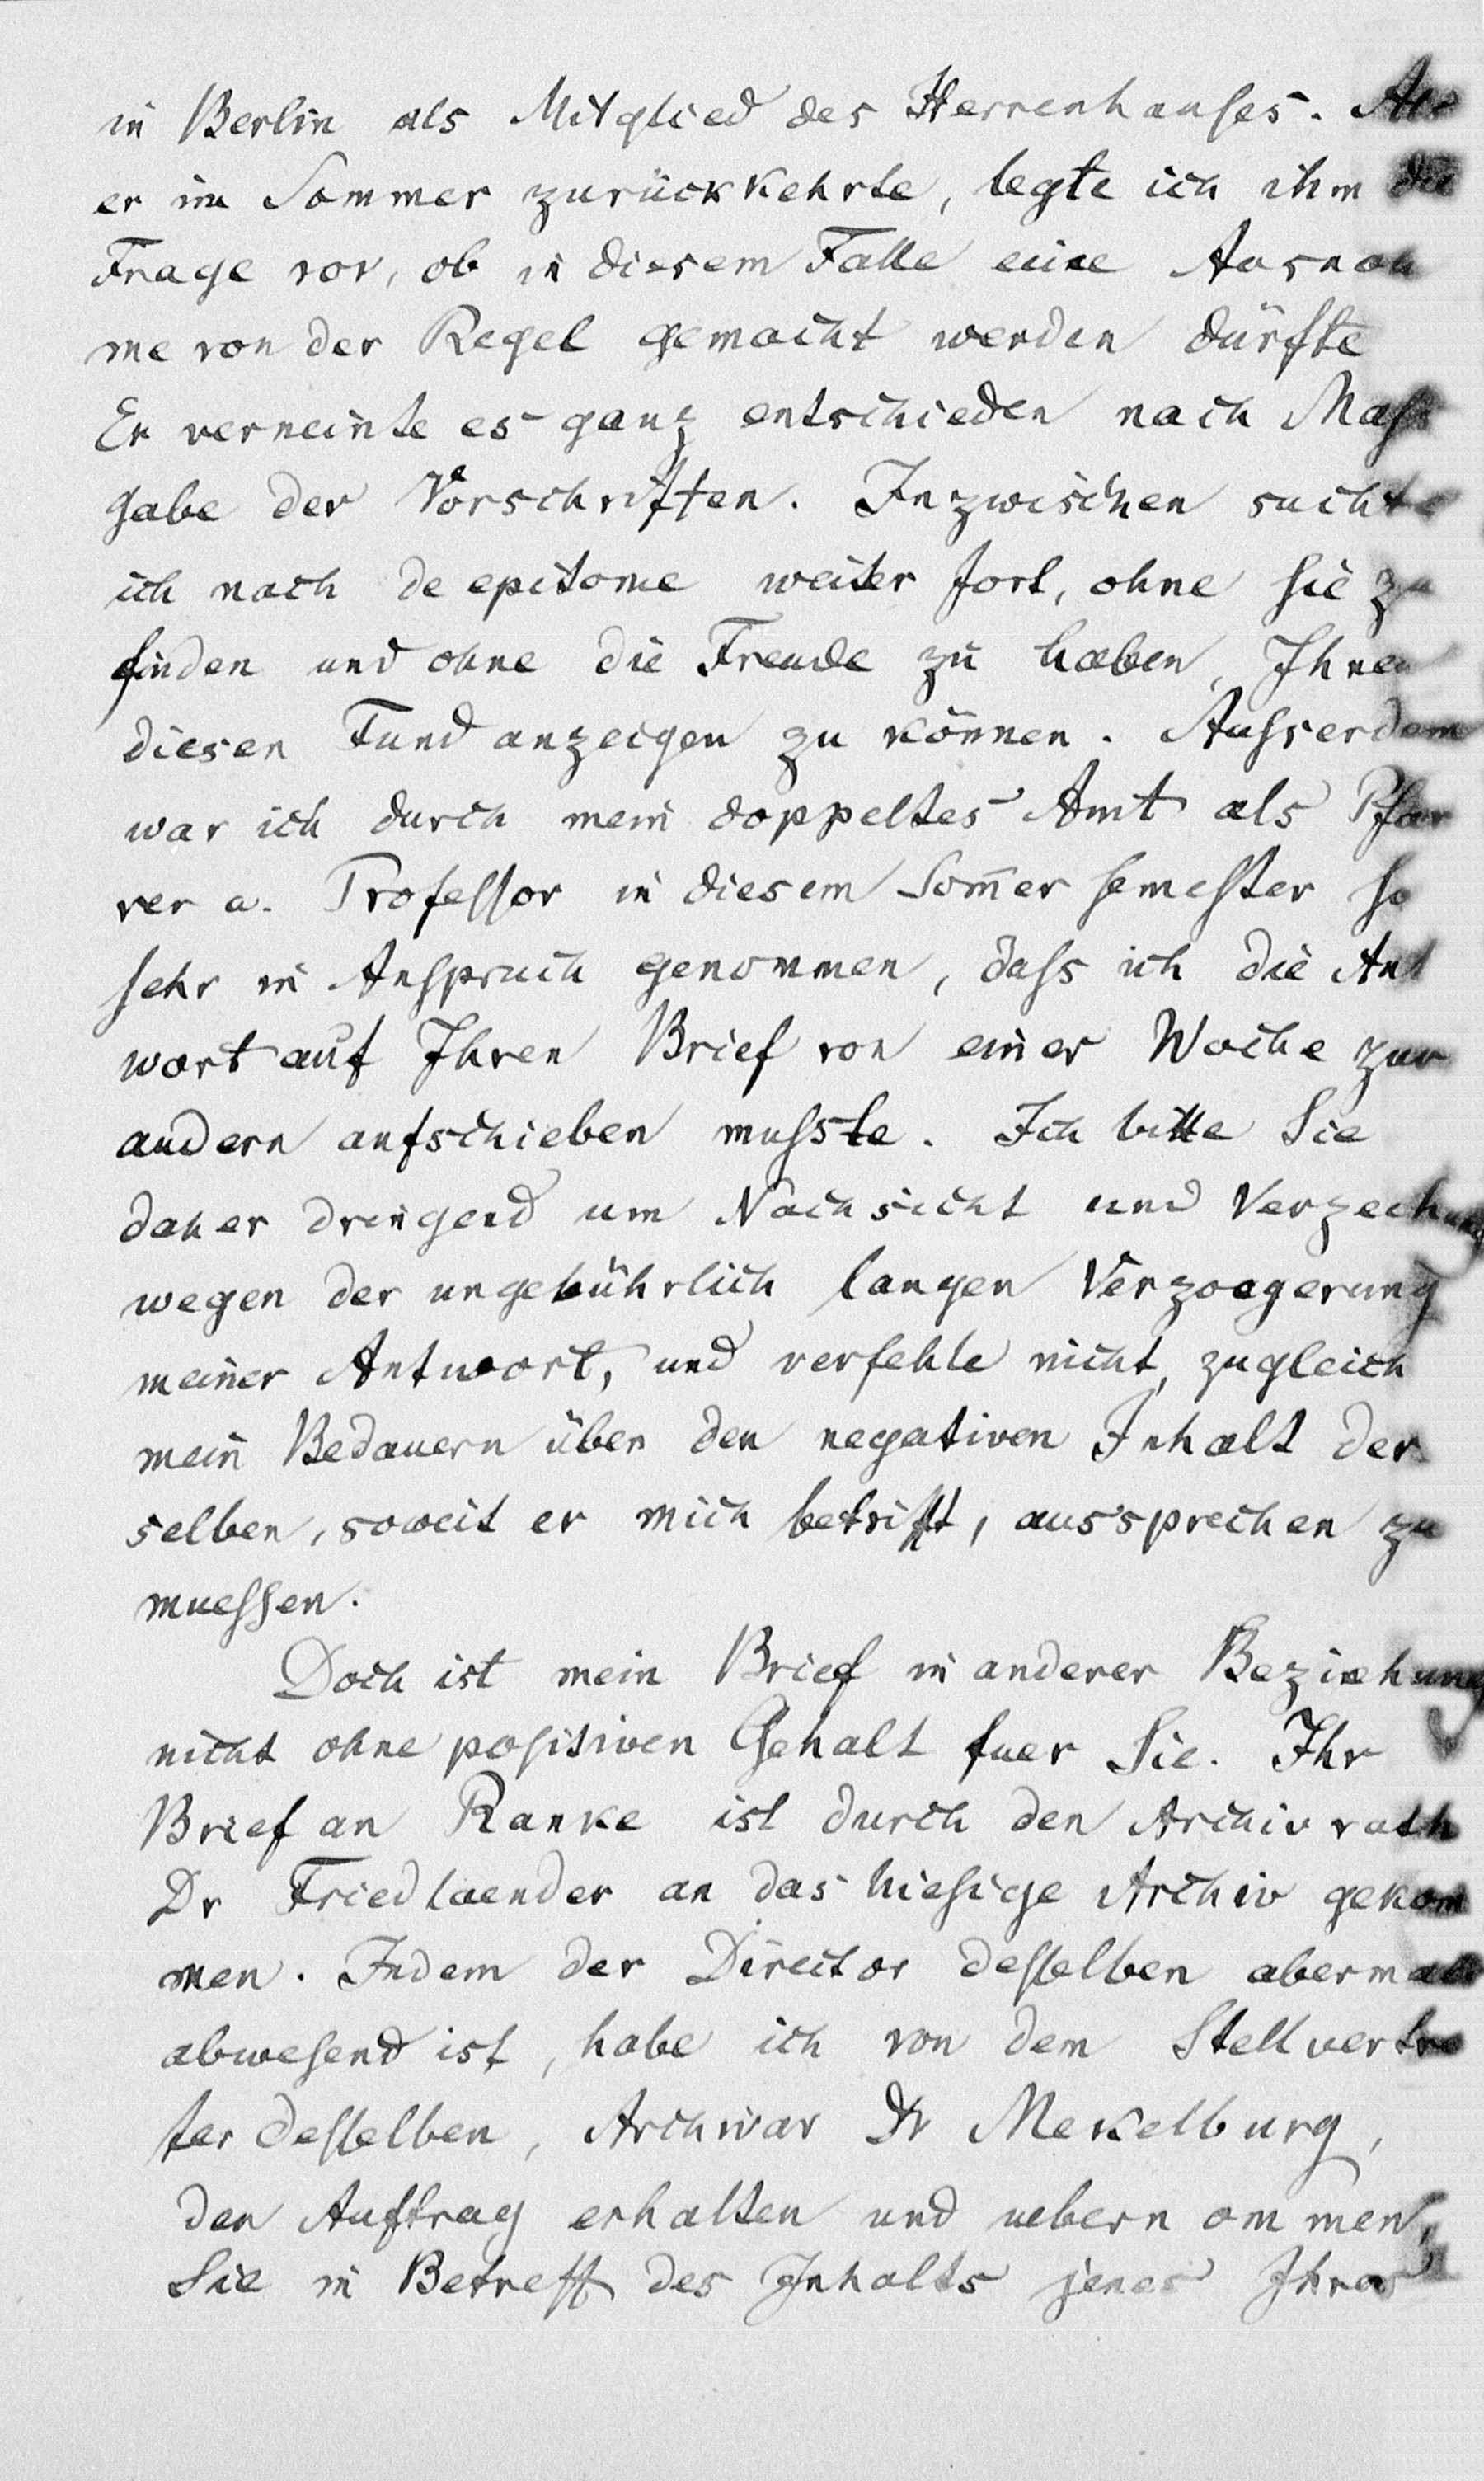 in Berlin als Mitglied des Herrenhauses. Als
er im Sommer zurückkehrte, legte ich ihm die
Frage vor, ob in diesem Falle eine Ausnah
me von der Regel gemacht werden dürfte
Er verneinte es ganz entschieden nach Mass
gabe der Vorschriften. Inzwischen suchte
ich nach de epitome weiter fort, ohne sie zu
finden und ohne die Freude zu haben, Ihnen
diesen Fund anzeigen zu können. Ausserdem
war ich durch mein doppeltes Amt als Pfar
rer u. Professor in diesem Som̄er semester so
sehr in Anspruch genommen, dass ich die Ant
wort auf Ihren Brief von einer Woche zur
andern aufschieben musste. Ich bitte Sie
daher dringend um Nachsicht und Verzeihung
wegen der ungebührlich langen Verzoegerung
meiner Antwort, und verfehle nicht, zugleich
mein Bedauern über den negativen Inhalt der
selben, soweit er mich betrifft, aussprechen zu
muessen.
Doch ist mein Brief in anderer Beziehung
nicht ohne positiven Gehalt fuer Sie. Ihr
Brief an Ranke ist durch den Archivrath
Dr Friedlaender an das hiesige Archiv gekom
men. Indem der Director desselben abermals
abwesend ist, habe ich von dem Stellvertre
ter desselben, Archivar Dr Mekelburg,
den Auftrag erhalten und uebernommen,
Sie in Betreff des Inhalts jenes Ihres